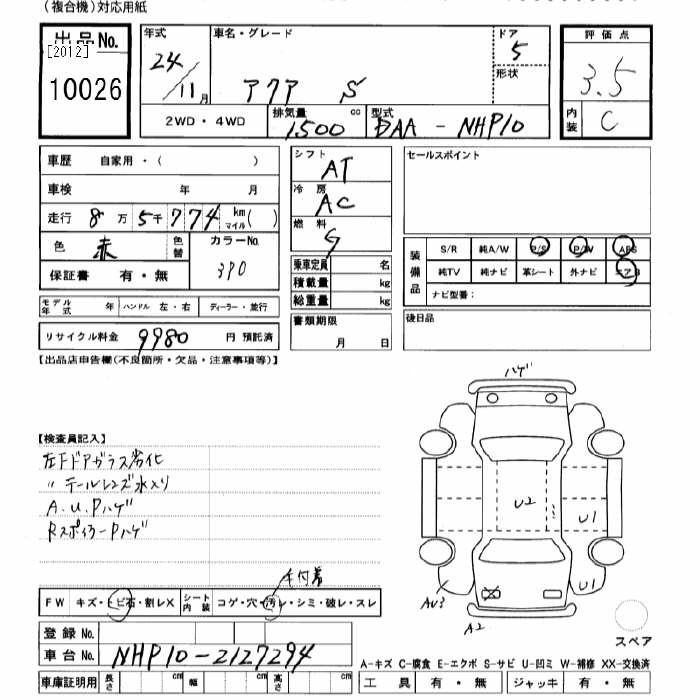 (複合機)対応用紙
出品No.
[2012]
10026
年式
24
11月
車名・グレード
アクア S
ドア
5
形状
評価点
3.5
内装
C
2WD・4WD
排気量 cc
1500
型式
DAA-NHP10
車歴 自家用・( )
車検 年 月
走行 8万5千774 km マイル( )
色 赤 色替
カラーNo.
3P0
保証書 有・無
モデル年式 年 ハンドル 左・右 ディーラー・並行
リサイクル料金 9980 円 預託済
シフト
AT
冷房
AC
燃料
G
乗車定員 名
積載量 kg
総重量 kg
書類期限
月 日
セールスポイント
装備品
S/R 純A/W P/S P/W ABS
純TV 純ナビ 革シート 外ナビ エアB
ナビ型番:
後日品
【出品店申告欄(不良箇所・欠品・注意事項等)】
【検査員記入】
左Fドアガラス劣化
〃テールレンズ水入り
A.U.Pハゲ
RスポイラーPハゲ
毛付着
FW キズ・トビ石・割レX シート内装 コゲ・穴・汚レ・シミ・破レ・スレ
登録No.
車台No. NHP10-2127294
車庫証明用 長さ cm 幅 cm 高さ cm
ハゲ
U2
U1
U1
AU3
A2
スペア
A-キズ C-腐食 E-エクボ S-サビ U-凹ミ W-補修 XX-交換済
工具 有・無 ジャッキ 有・無